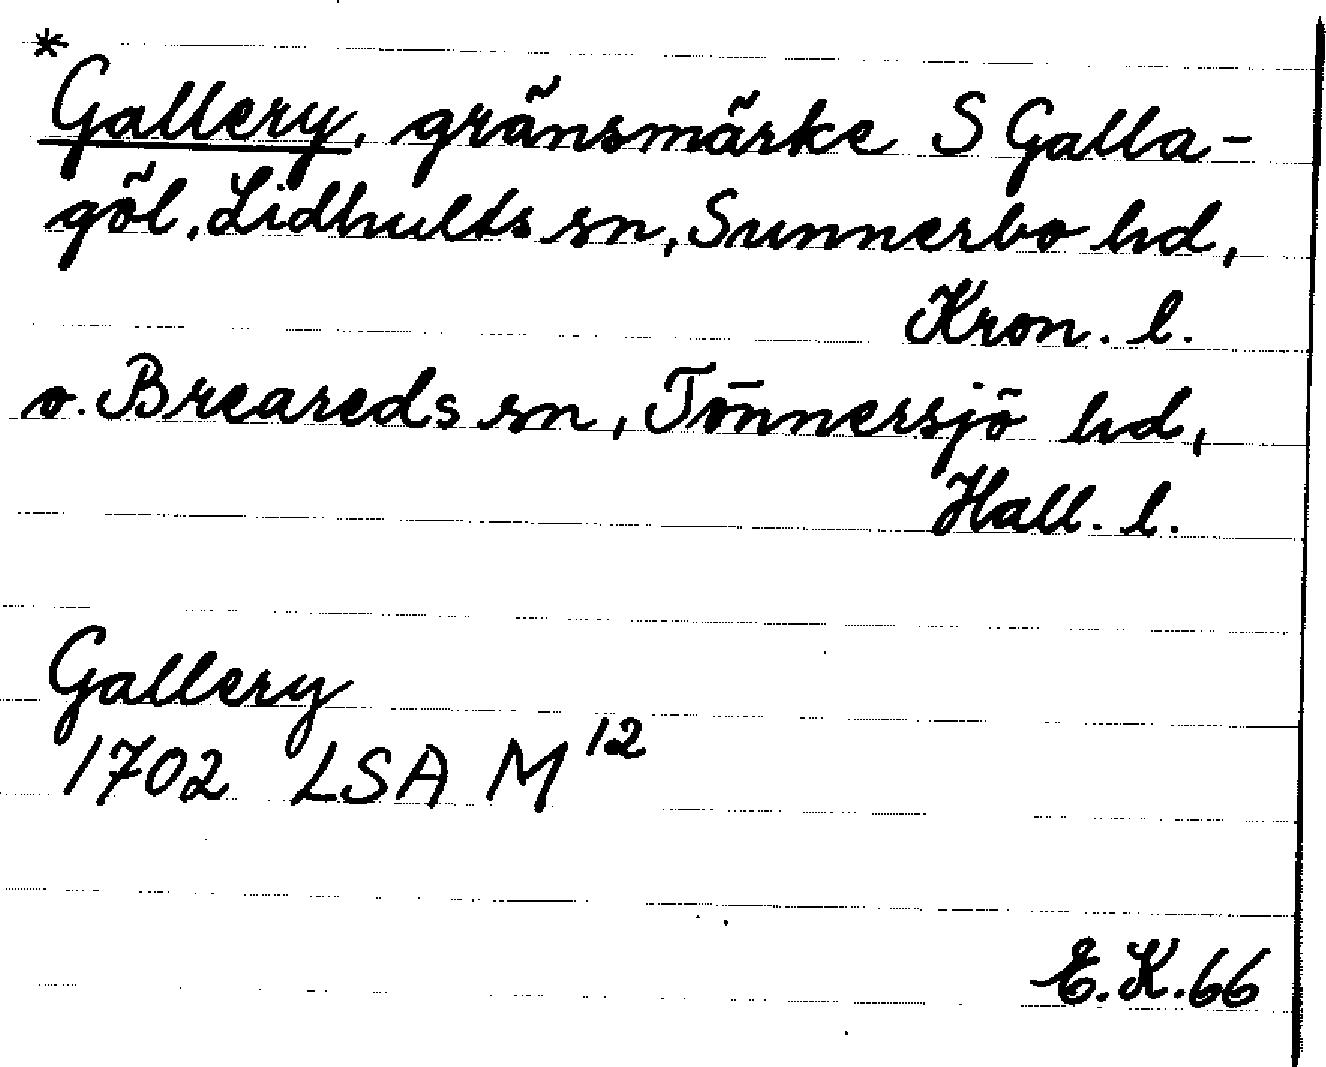 *
Gallery, gränsmärke S Galla-
göl, Lidhults sn, Sunnerbo hd,
Kron. l.
o. Breareds sn, Tönnersjö hd,
Hall. l.
Gallery
1702 LSA M 12
E.K.66